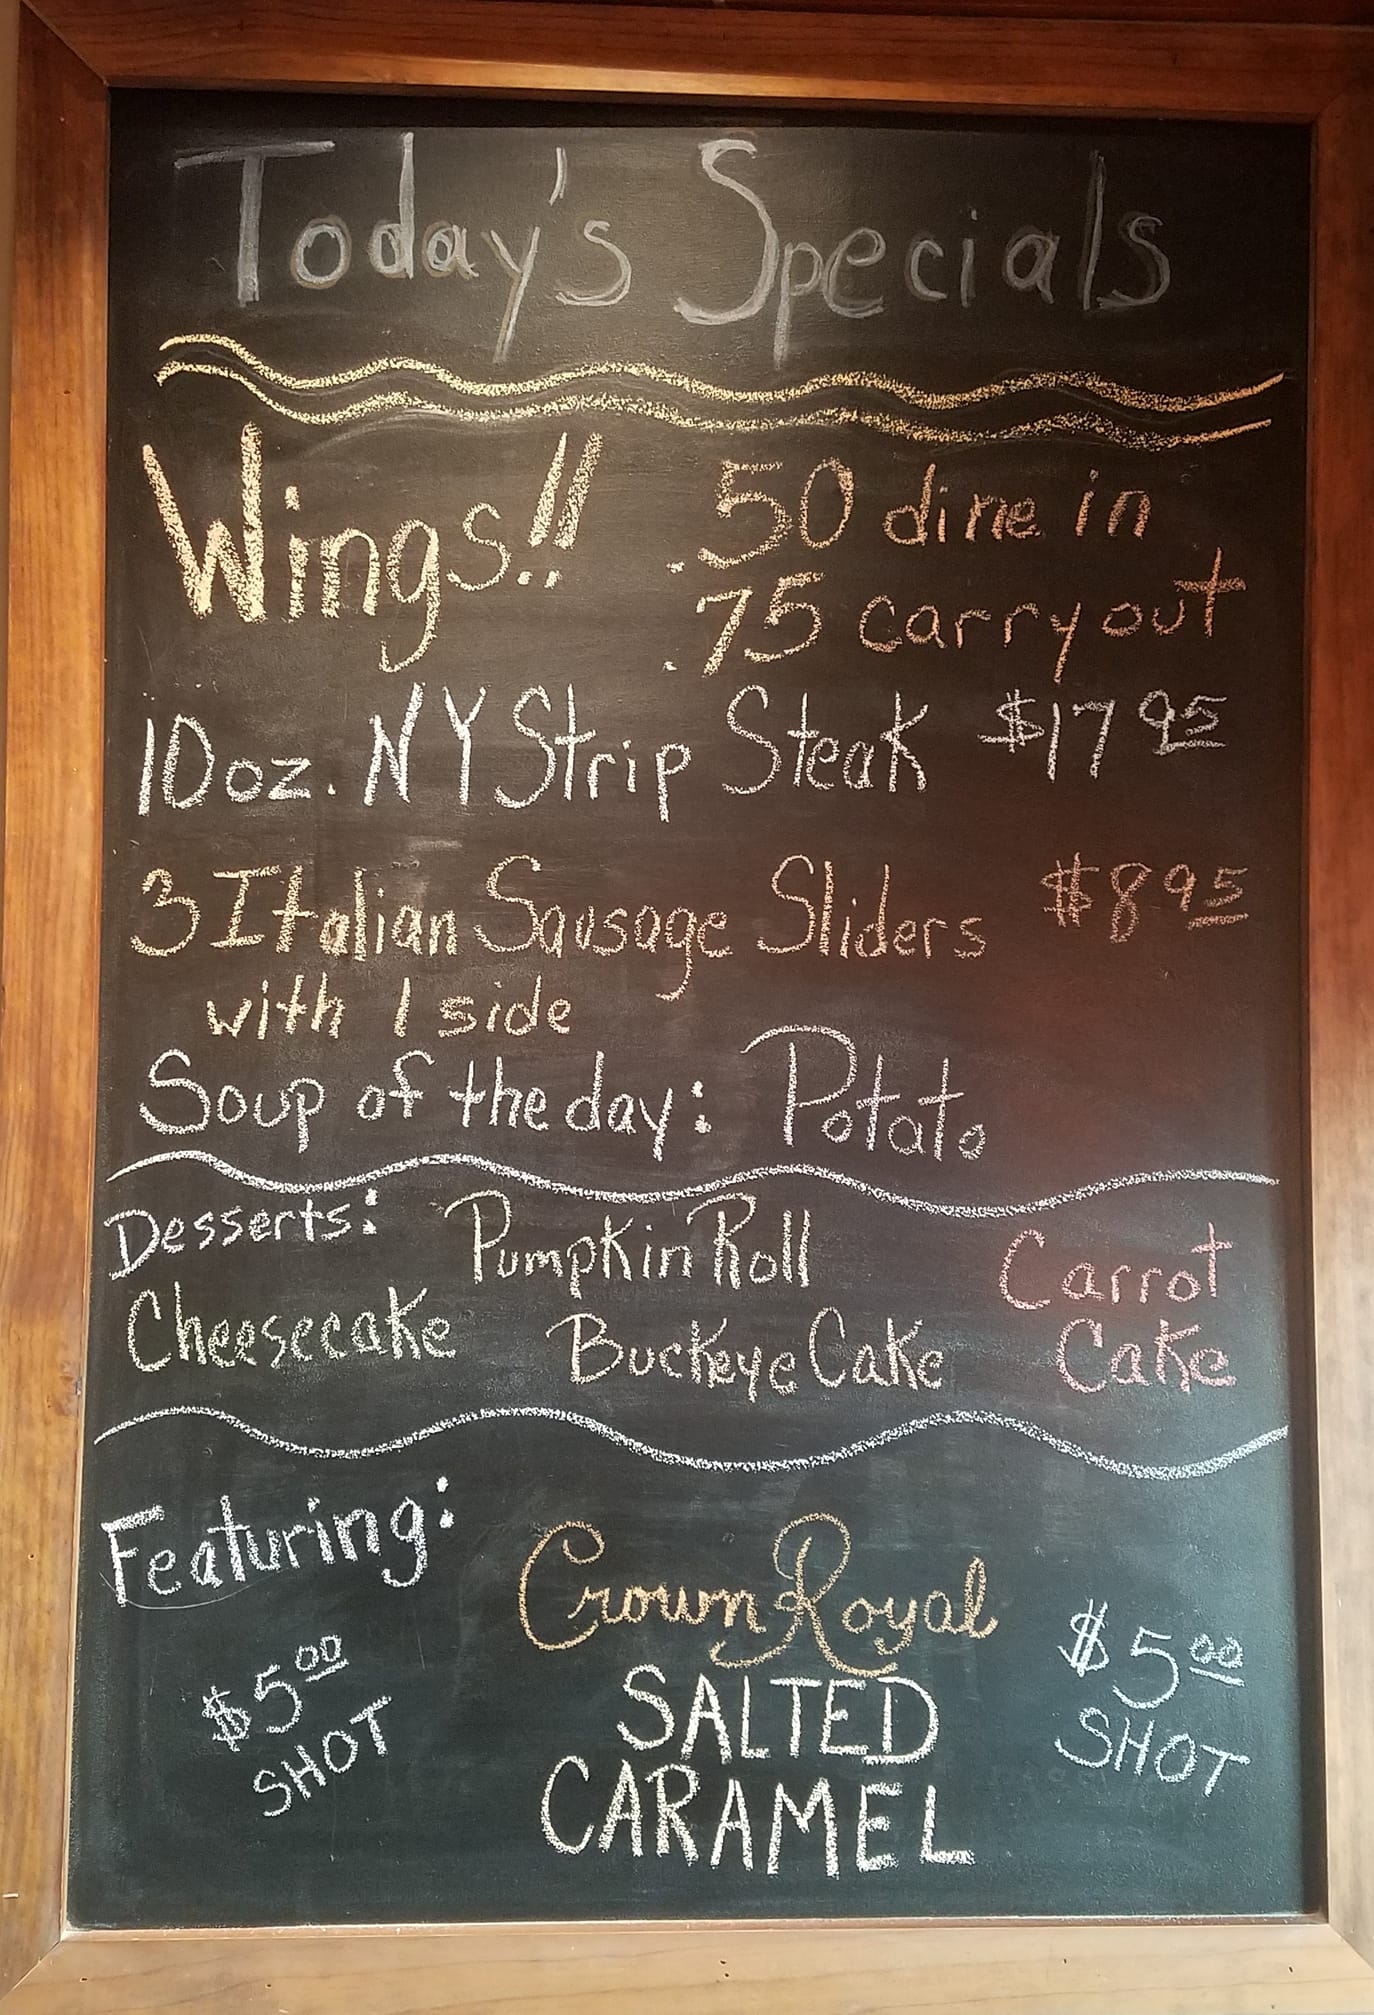 Today's Specials
Wings!! .50 dine in
.75 carryout
10oz. NY Strip Steak $17 95
3 Italian Sausage Sliders $8 95
with 1 side
Soup of the day: Potato
Desserts: Pumpkin Roll Carrot
Cheesecake Buckeye Cake Cake
Featuring:
Crown Royal
$5 00 SALTED $5 00
SHOT CARAMEL SHOT